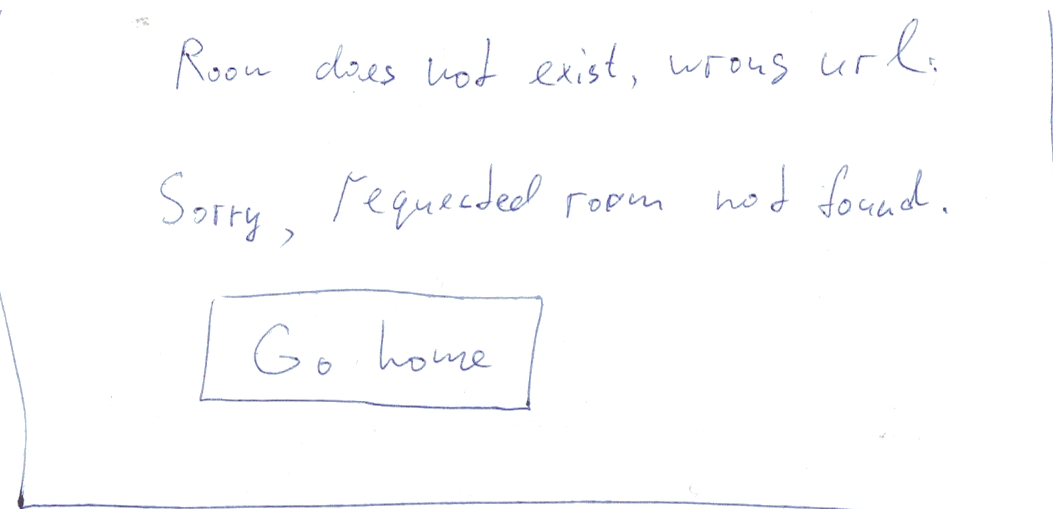 Room does not exist, wrong url.
Sorry, requested room not found.
Go home